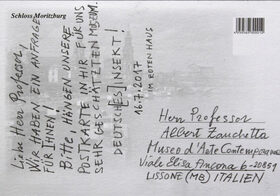 Schloss Moritzburg
Liebe Herr Professor,
WIR HABEN EIN ANFRAGE
FÜR IHNEN!
Bitte, HÄNGEN UNSERE
POSTKARTE IN IHR FÜR UNS
SEHR GESCHÄTZTEN MUSEUM.
DEUTSCH[ES] INSEKT!
16.7.2017
IM ROTEN HAUS
Herr Professor
Alberto Zanchetta
Museo d'Arte Contemporanea
Viale Elisa Ancona 6-20851
LISSONE (MB) ITALIEN